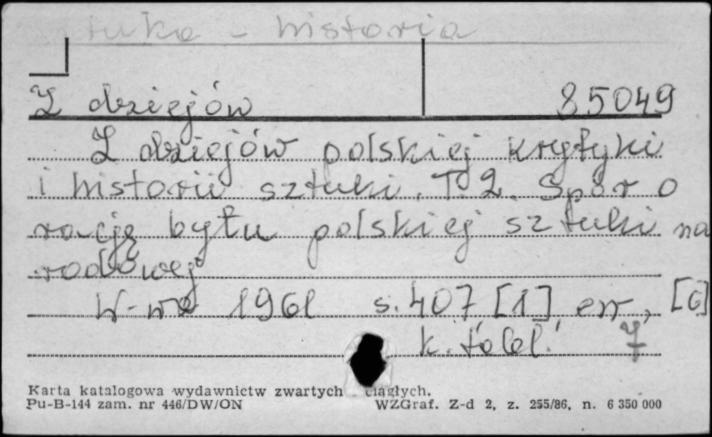 sztuka - historia
Z dziejów 85049
Z dziejów polskiej krytyki
i historii sztuki. T. 2. Spór o
rację bytu polskiej sztuki na
rodowej
W-wa 1961 s. 407 [1] err, [6]
k. tabl.
Karta katalogowa wydawnictw zwartych ciągłych.
Pu-B-144 zam. nr 446/DW/ON WZGraf. Z-d 2, z. 255/86, n. 6 350 000